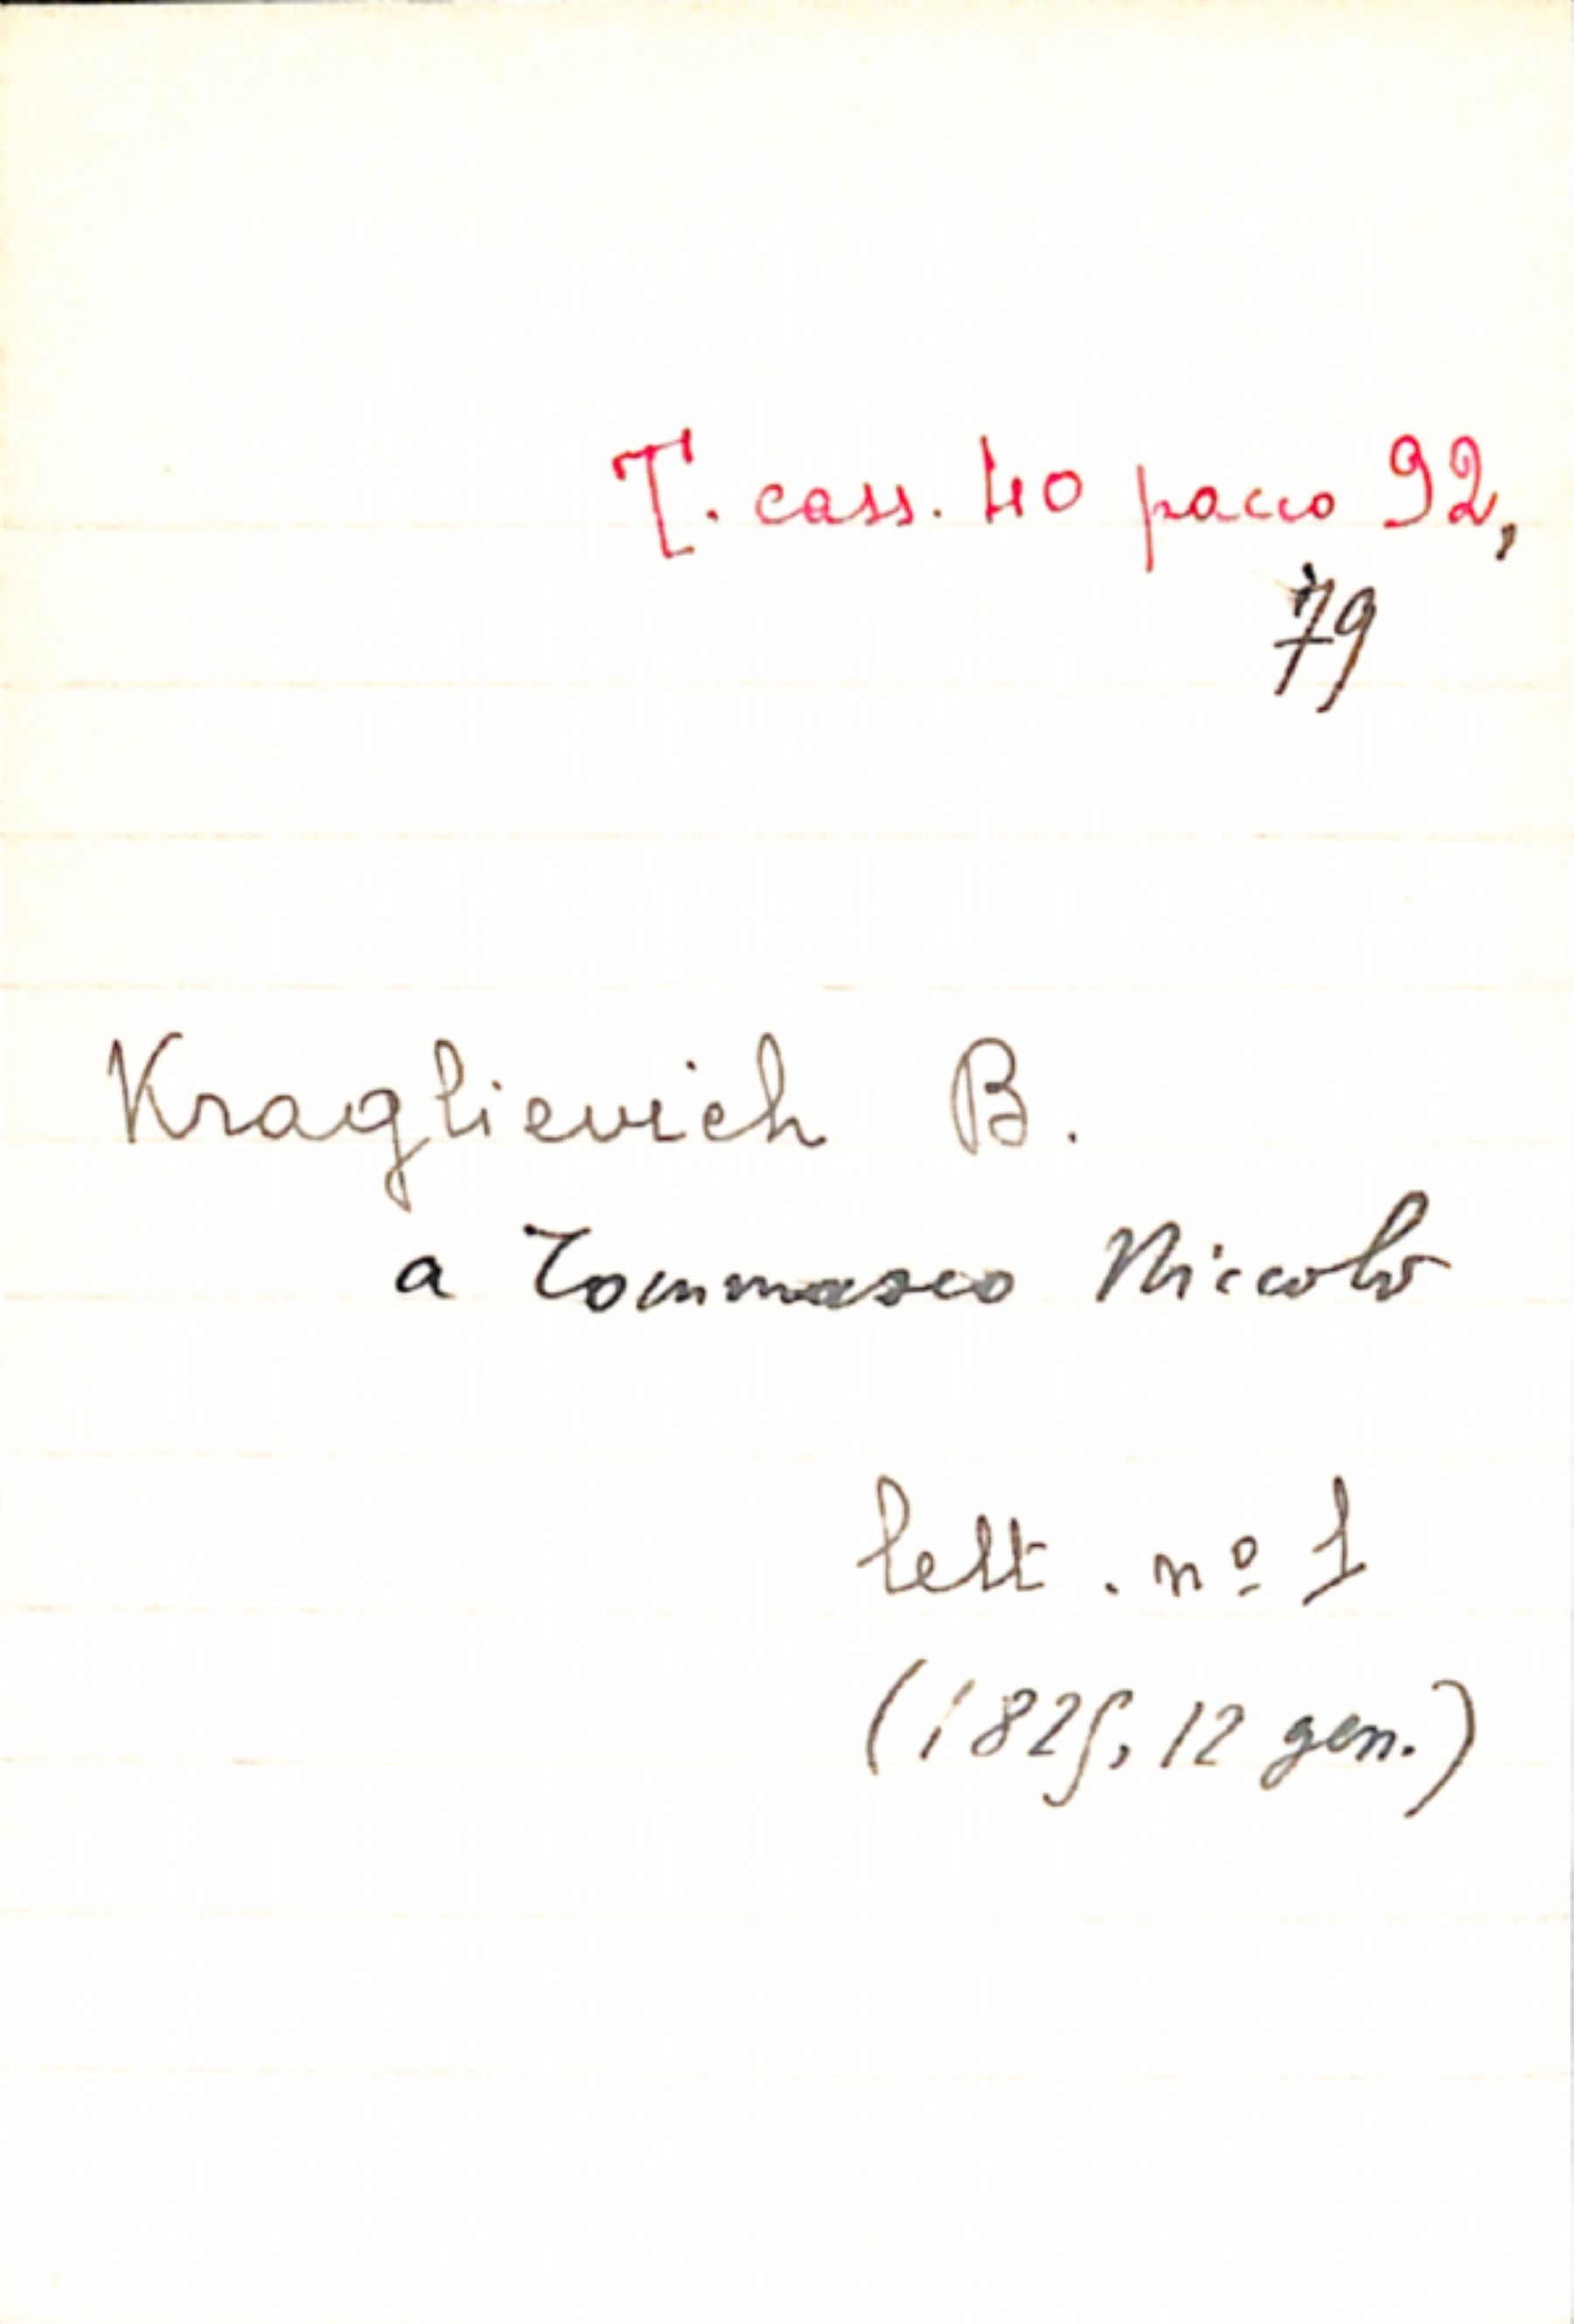 T. cass. 40 pacco 92,
79
Kraglievich B.
a Tommaseo Niccolò
lett. nº 1
(1825, 12 gen.)